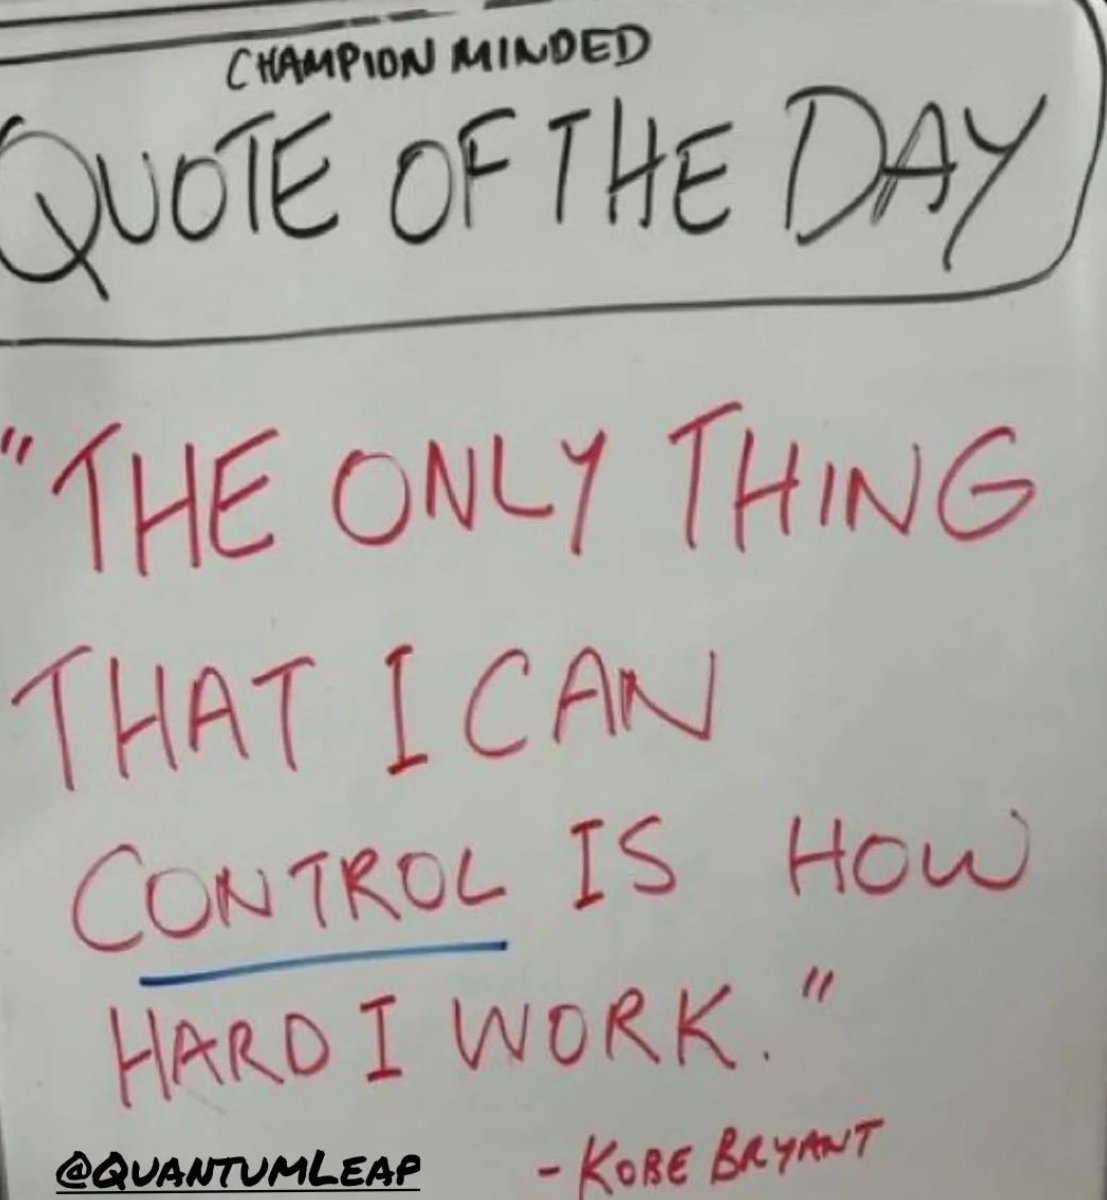 CHAMPION MINDED
QUOTE OF THE DAY
"THE ONLY THING
THAT I CAN
CONTROL IS HOW
HARD I WORK."
- KOBE BRYANT
@QUANTUMLEAP